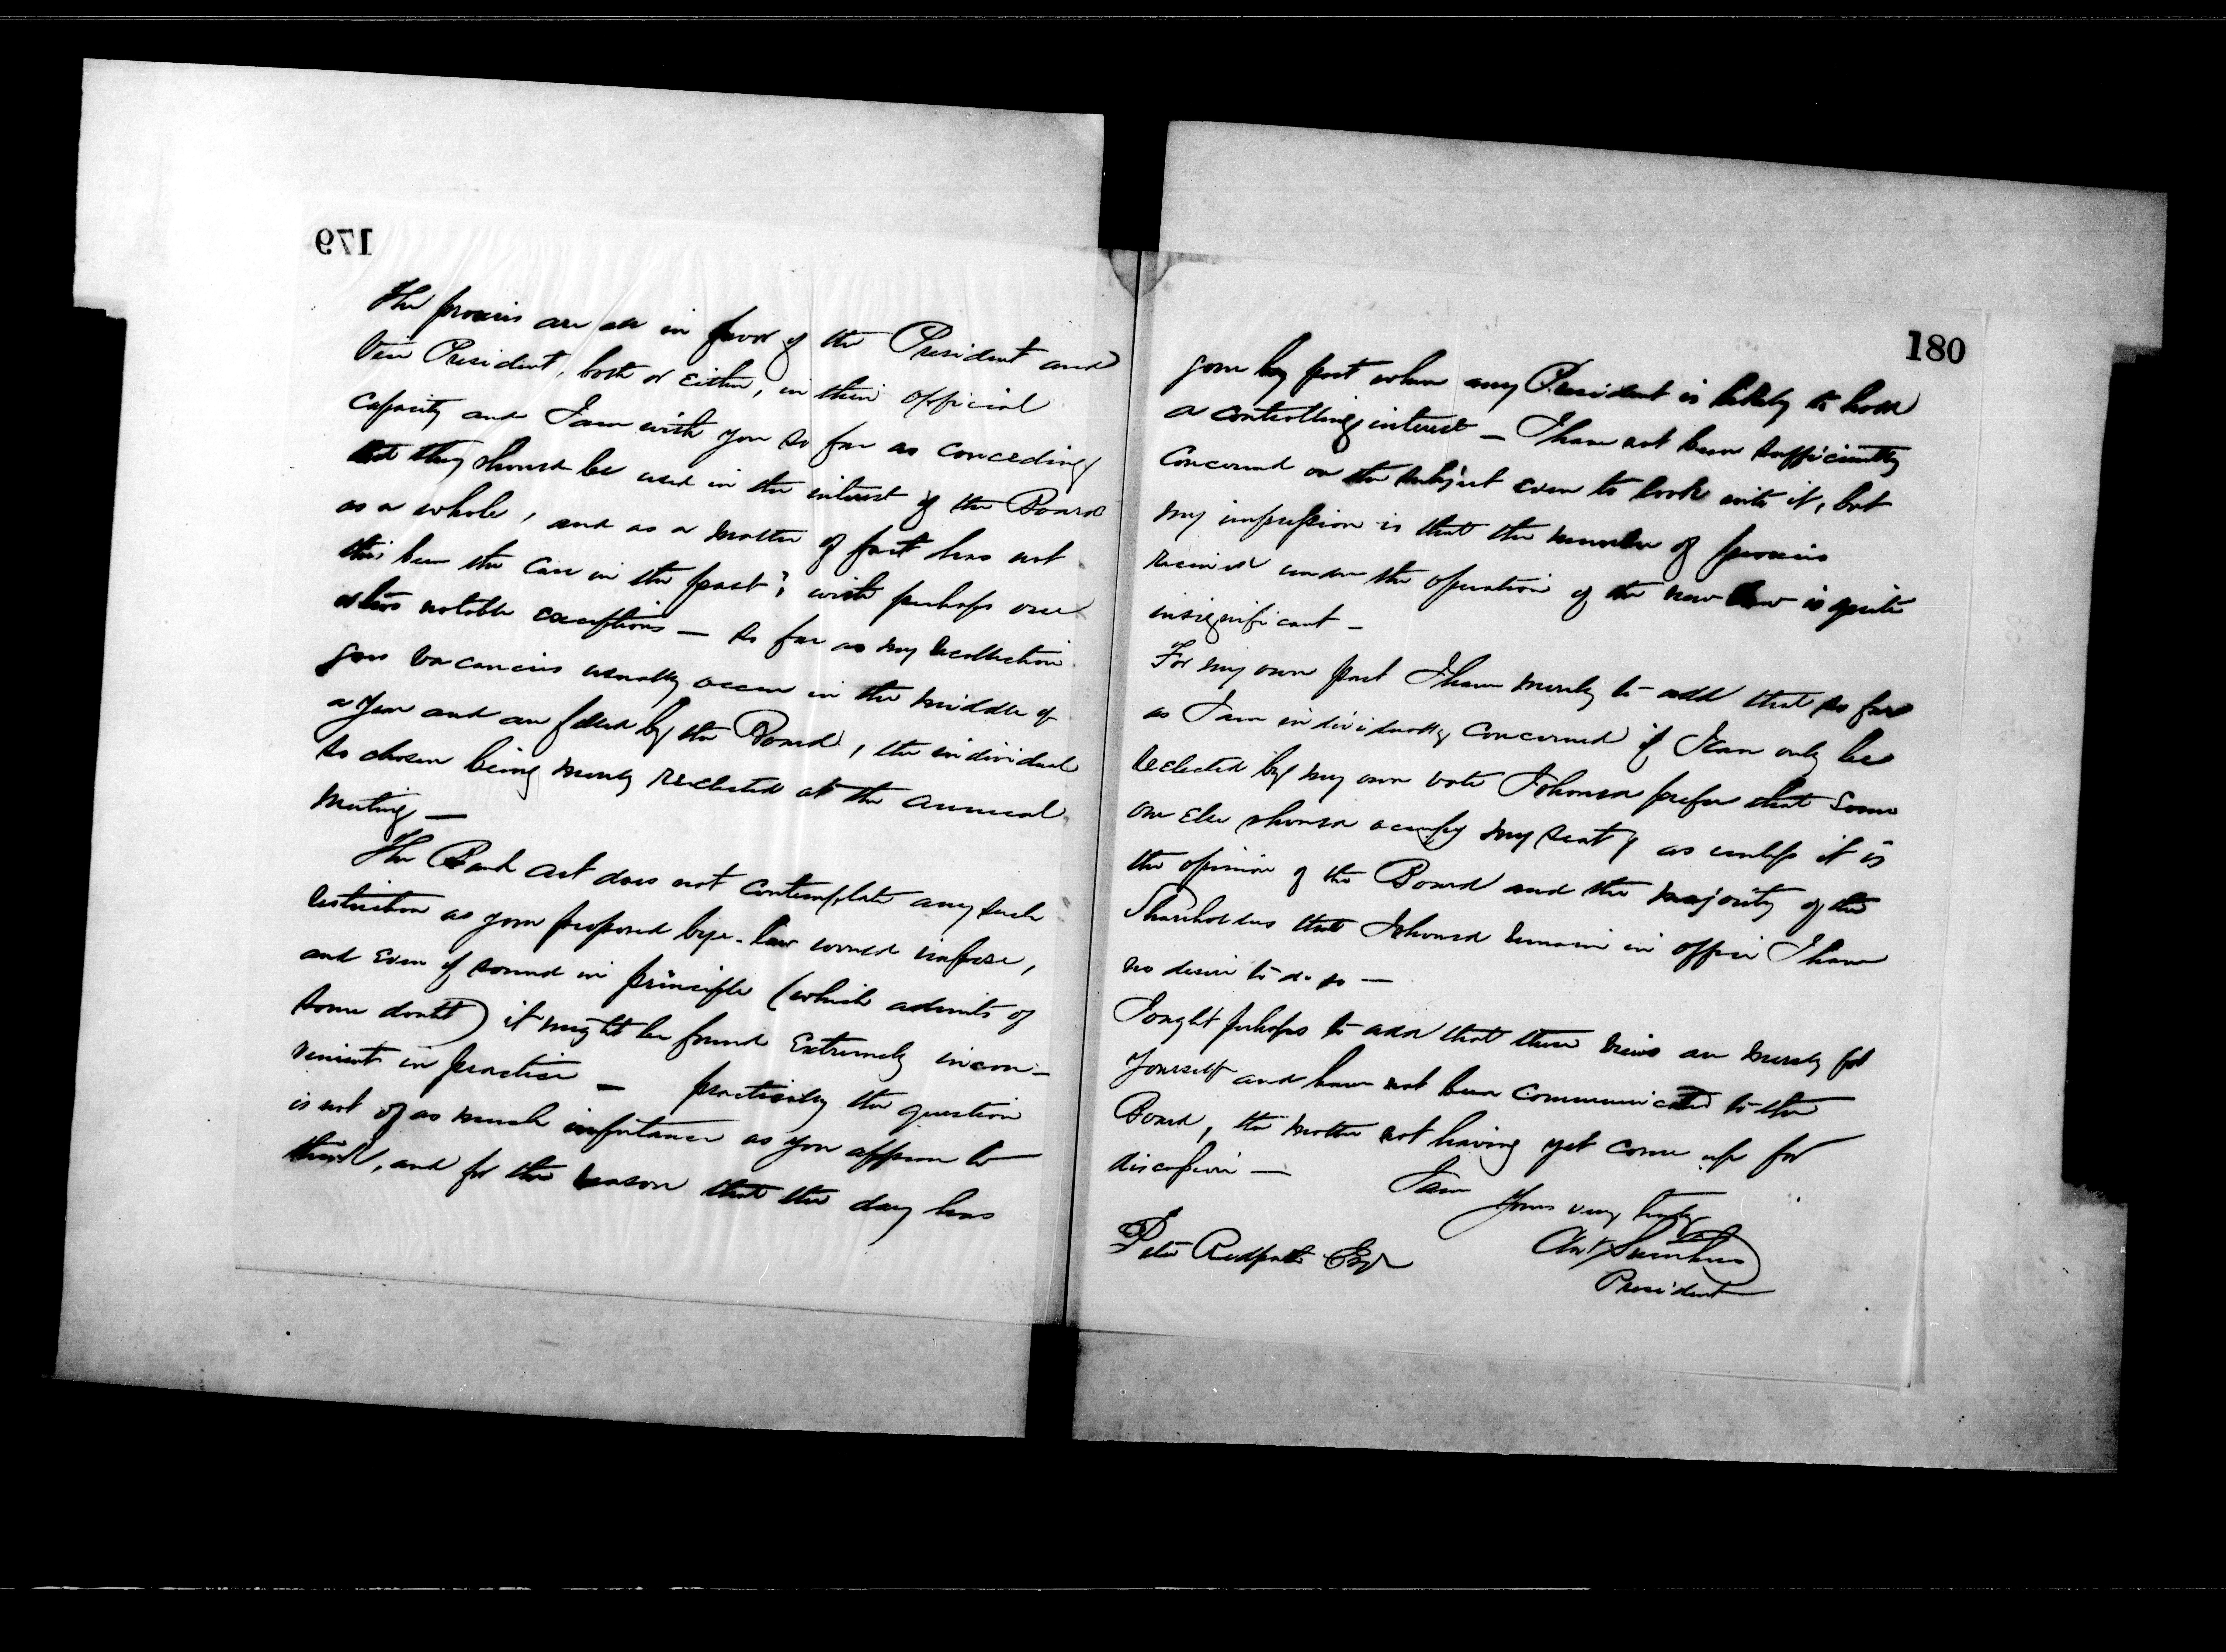 179
The proxies are all in favor of the President and
Vice President, both or either, in their official
capacity and I am with you so far as conceding
that they should be used in the interest of the Board
as a whole, and as a matter of fact has not
this been the case in the past? with perhaps one
notable exceptions — So far as my recollection
goes vacancies usually occur in the middle of
a year and are filled by the Board, the individual
so chosen being merely reelected at the annual
meeting —
The Bank act does not contemplate any such
restriction as your proposed bye-law would impose,
and even if sound in principle (which admits of
some doubt) it might be found extremely incon-
venient in practice — practically the question
is not of as much importance as you appear to
think, and for the reason that the day has
180
gone by past when any President is likely to hold
a controlling interest — I have not been sufficiently
concerned on the subject even to look into it, but
my impression is that the number of proxies
received under the operation of the new law is quite
insignificant —
For my own part I have merely to add that so far
as I am individually concerned if I can only be
reelected by my own vote I should prefer that some
one else should occupy my seat, as unless it is
the opinion of the Board and the majority of the
Shareholders that I should remain in office I have
no desire to do so —
I ought perhaps to add that these views are merely for
yourself and have not been communicated to the
Board, the matter not having yet come up for
discussion —
I am
Yours very truly
President
Peter Redpath Esqr